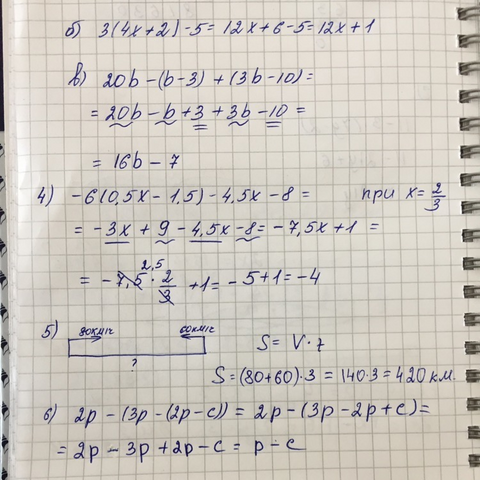 б) 3(4x+2)-5=12x+6-5=12x+1
в) 20b-(b-3)+(3b-10)=
=20b-b+3+3b-10=
=16b-7
4) -6(0,5x-1,5)-4,5x-8= при x=2/3
=-3x+9-4,5x-8=-7,5x+1=
2,5
=-7,5·2/3+1=-5+1=-4
5) 80км/ч 60км/ч S=V·t
?
S=(80+60)·3=140·3=420 км.
6) 2p-(3p-(2p-c))=2p-(3p-2p+c)=
=2p-3p+2p-c=p-c